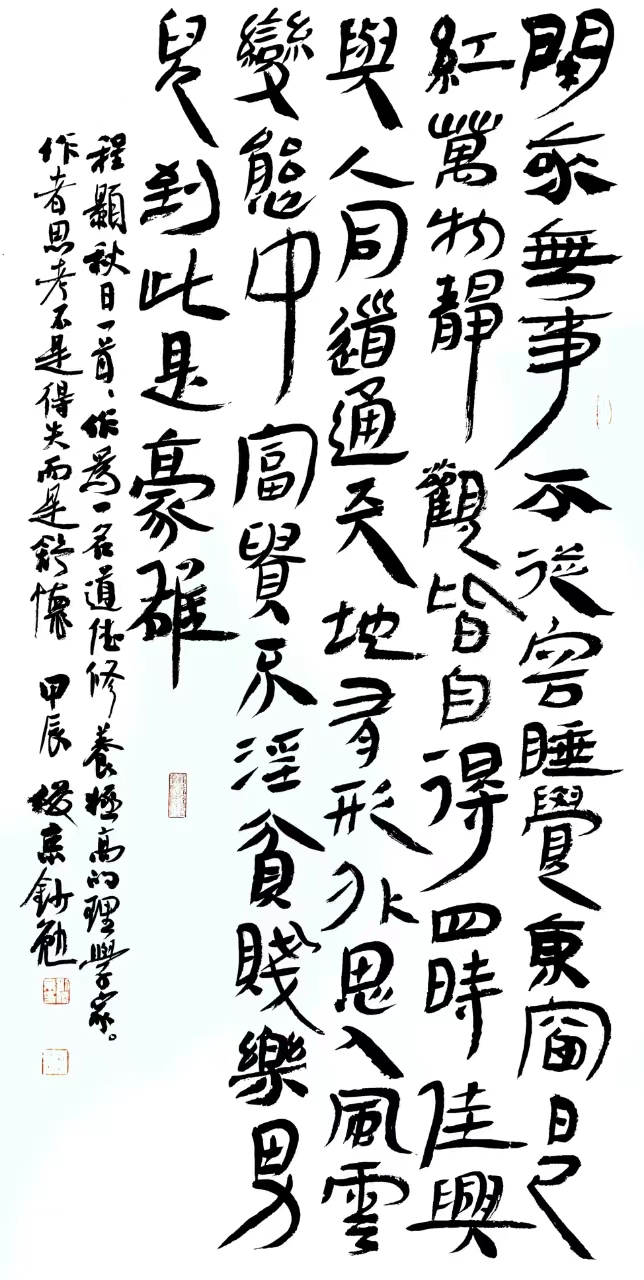 閑來無事不從容睡覺東窗日已
紅萬物靜觀皆自得四時佳興
與人同道通天地有形外思入風雲
變態中富貴不淫貧賤樂男
兒到此是豪雄
程顥秋日一首、作為一名道德修養極高的理學家。
作者思考不是得失而是舒懷 甲辰